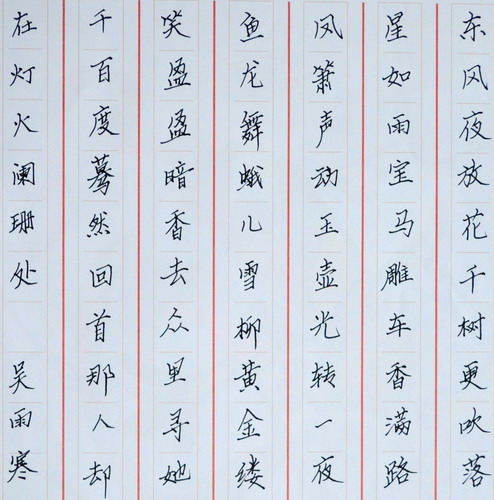 东风夜放花千树更吹落
星如雨宝马雕车香满路
凤箫声动玉壶光转一夜
鱼龙舞蛾儿雪柳黄金缕
笑盈盈暗香去众里寻她
千百度蓦然回首那人却
在灯火阑珊处 吴雨寒